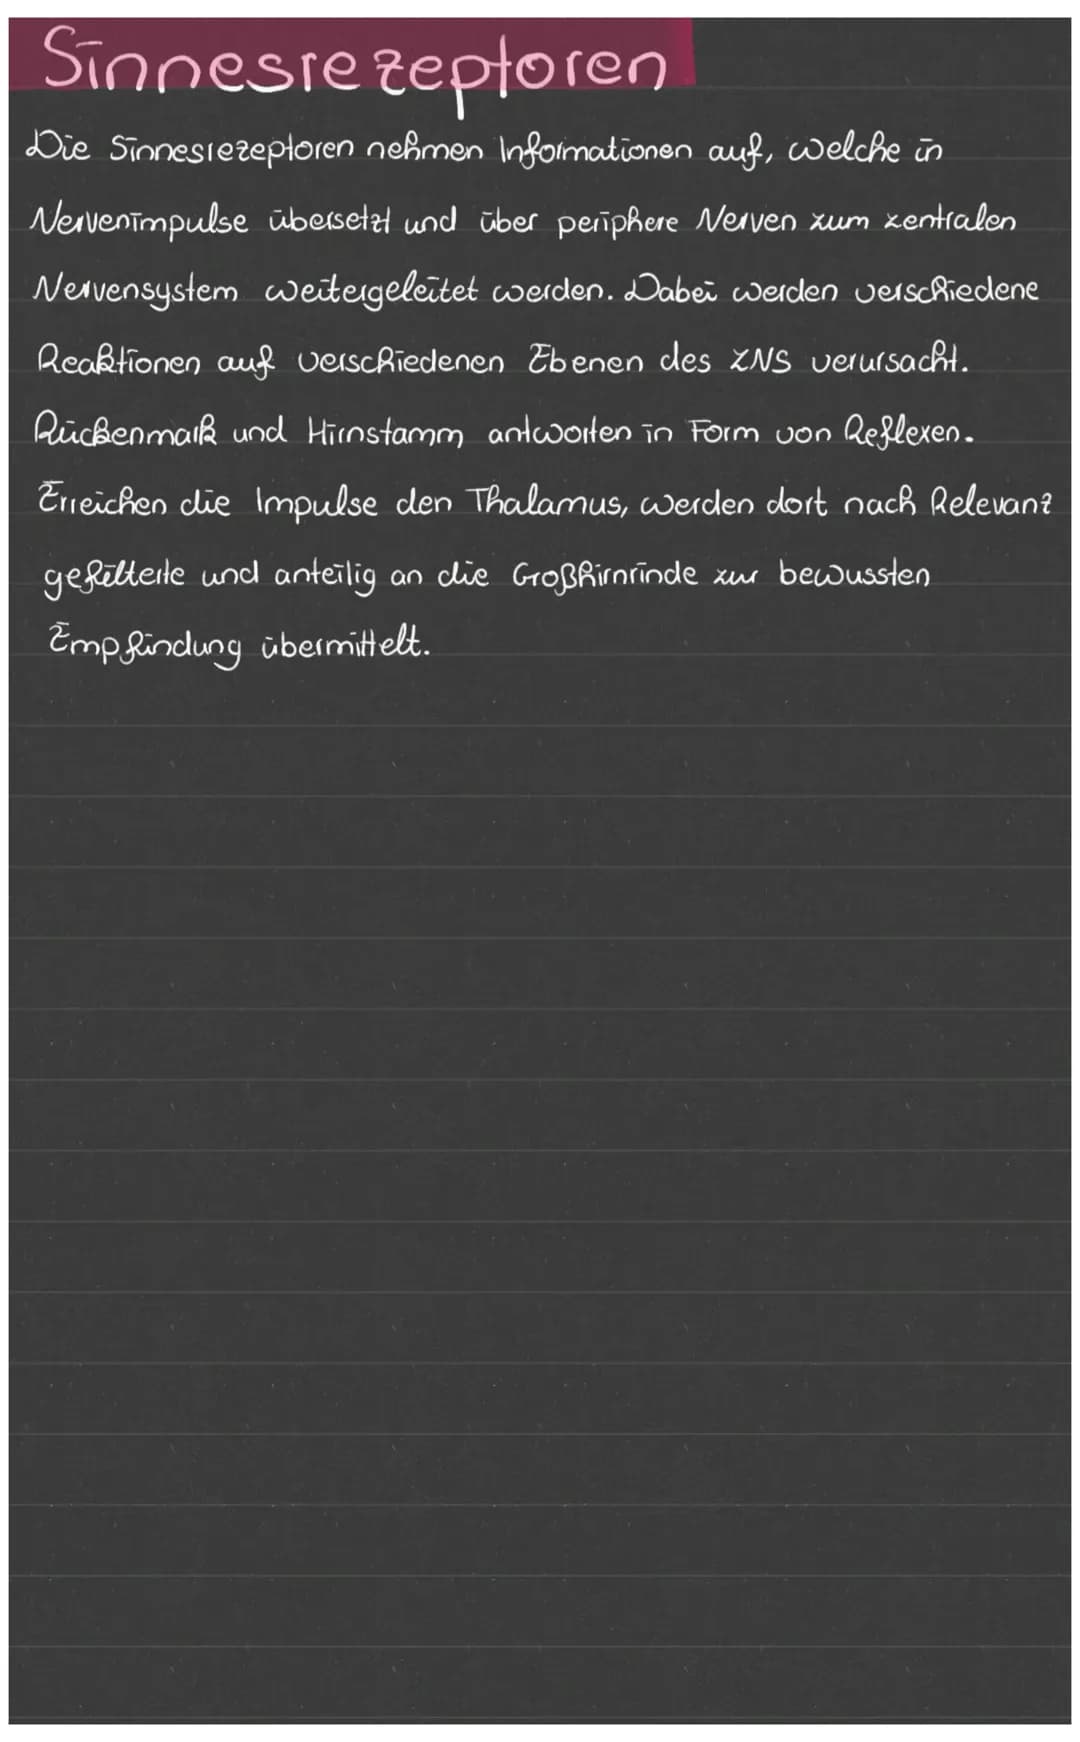 Sinnesrezeptoren
Die Sinnesrezeptoren nehmen Informationen auf, welche in
Nervenimpulse übersetzt und über periphere Nerven zum zentralen
Nervensystem weitergeleitet werden. Dabei werden verschiedene
Reaktionen auf verschiedenen Ebenen des ZNS verursacht.
Rückenmark und Hirnstamm antworten in Form von Reflexen.
Erreichen die Impulse den Thalamus, werden dort nach Relevanz
gefilterte und anteilig an die Großhirnrinde zur bewussten
Empfindung übermittelt.